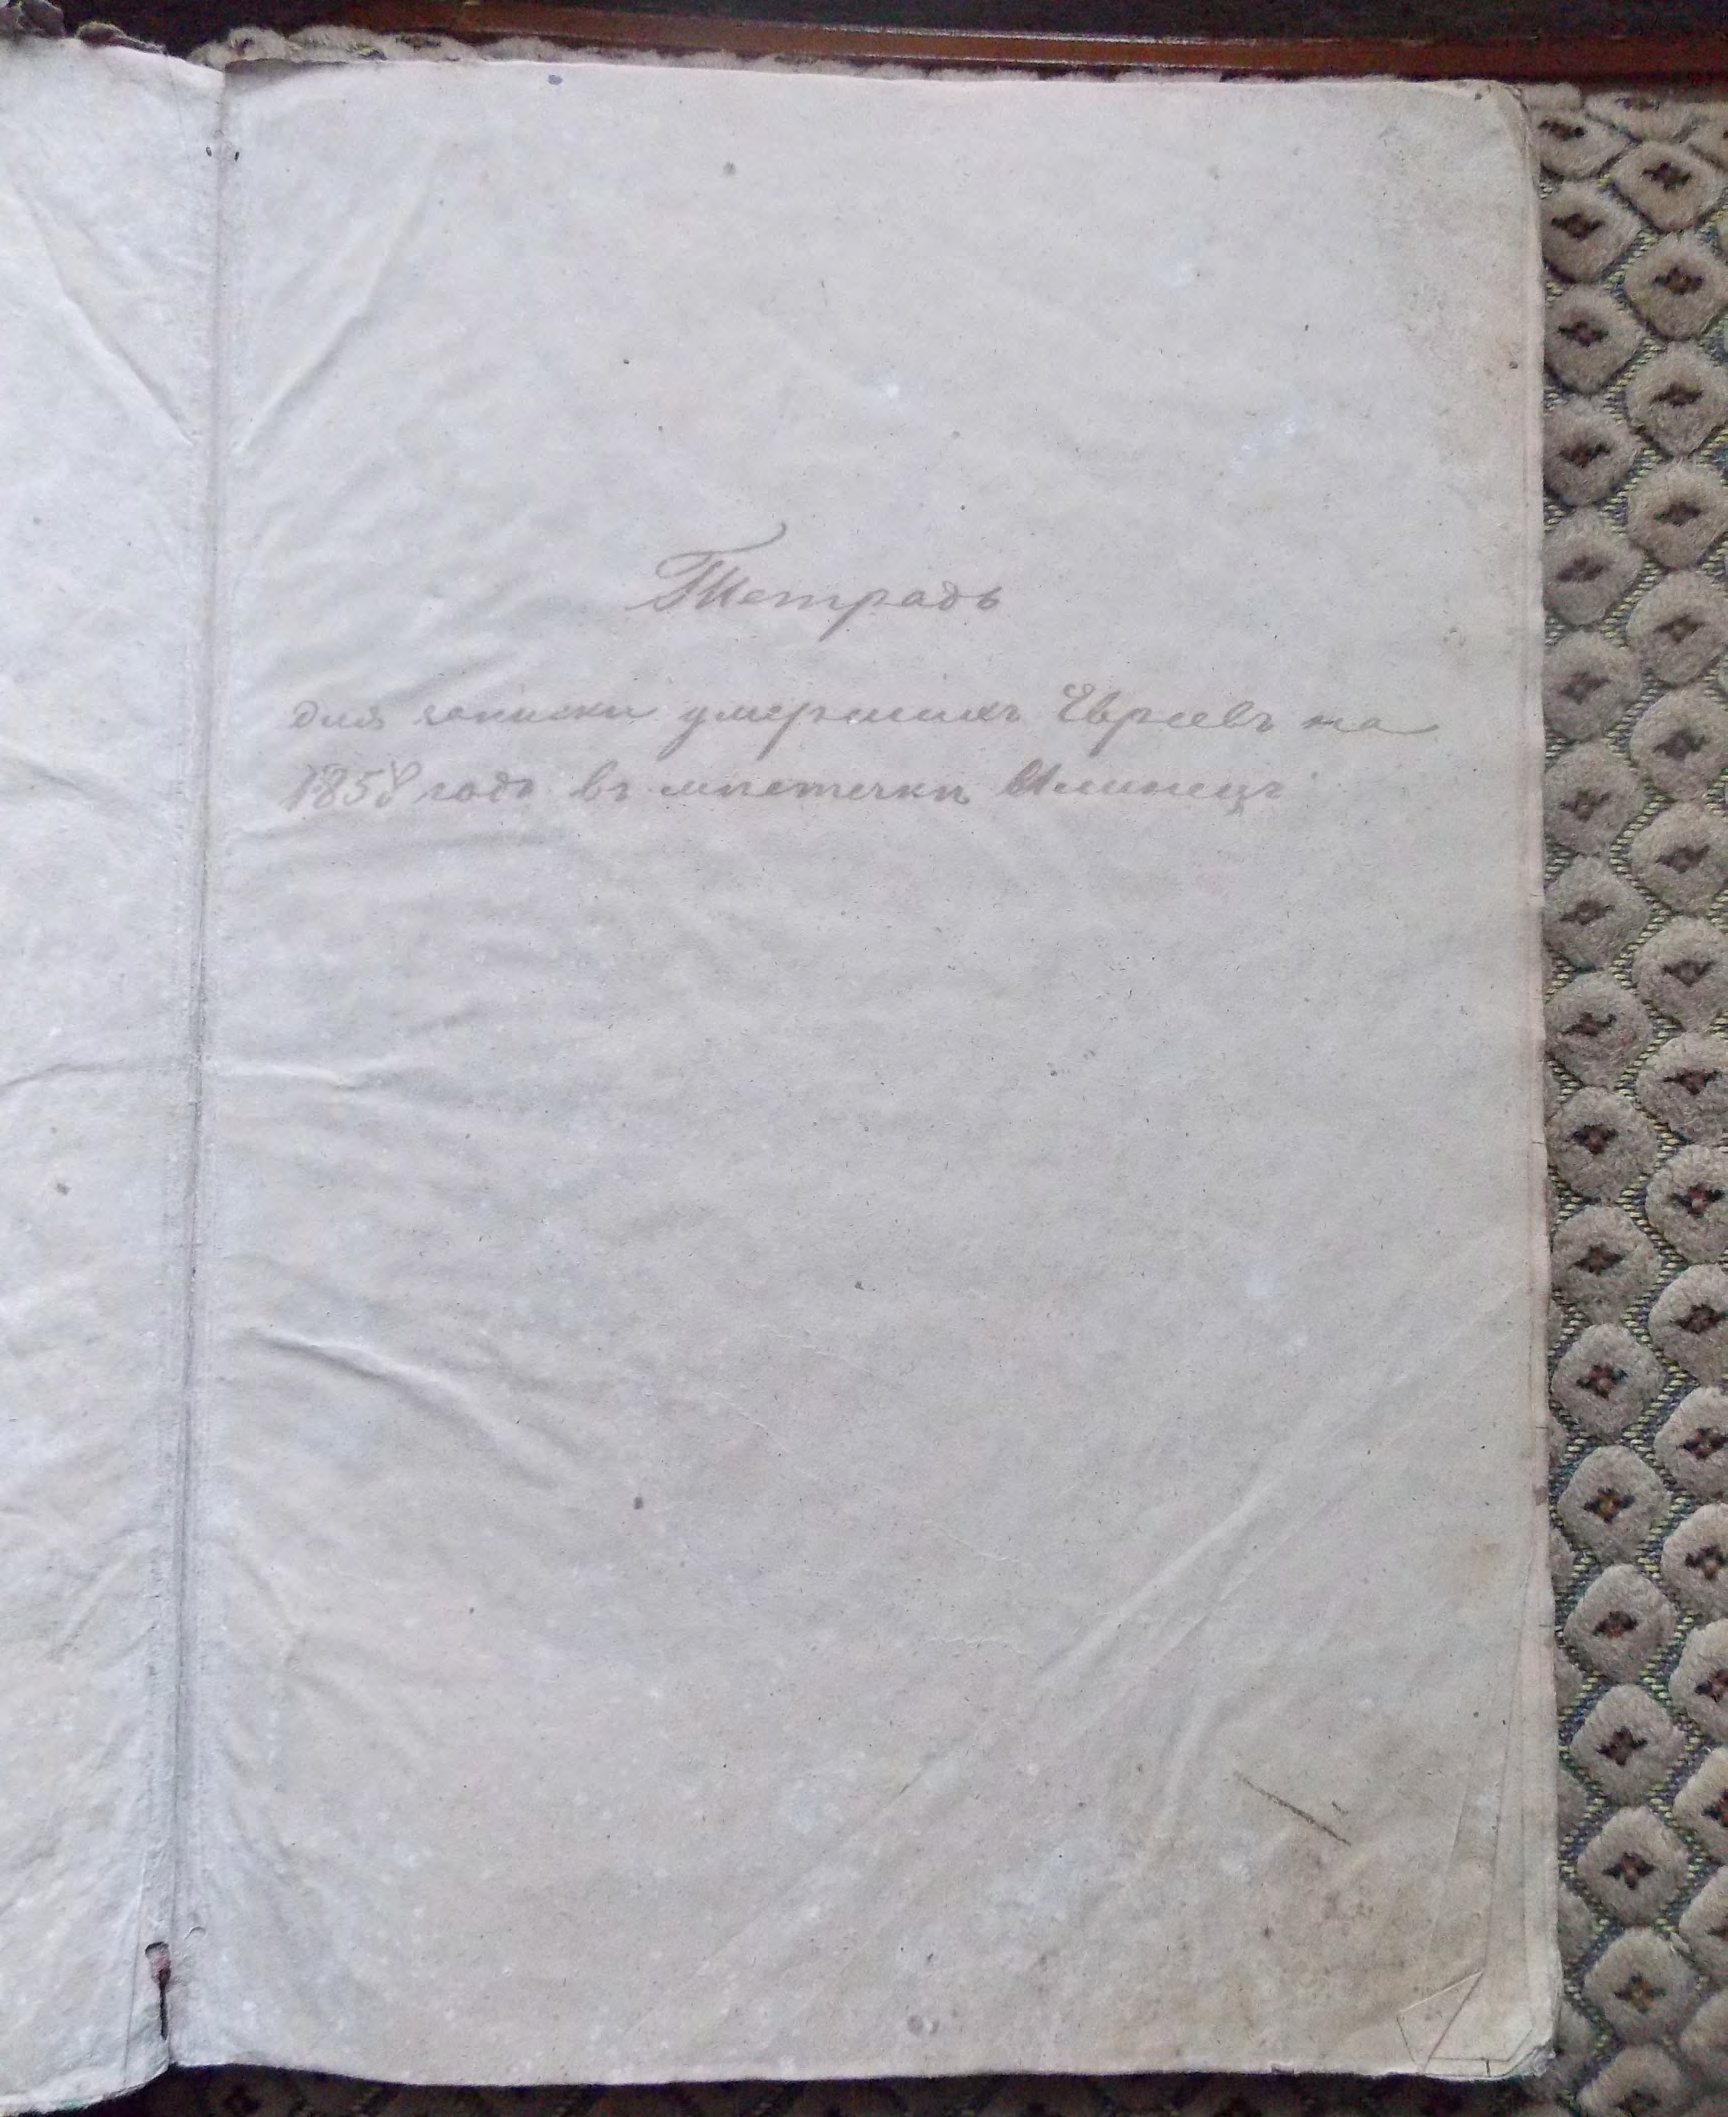 Тетрадь
для записки умершихъ Евреевъ на
1858 годъ въ мѣстечкѣ Илинецъ